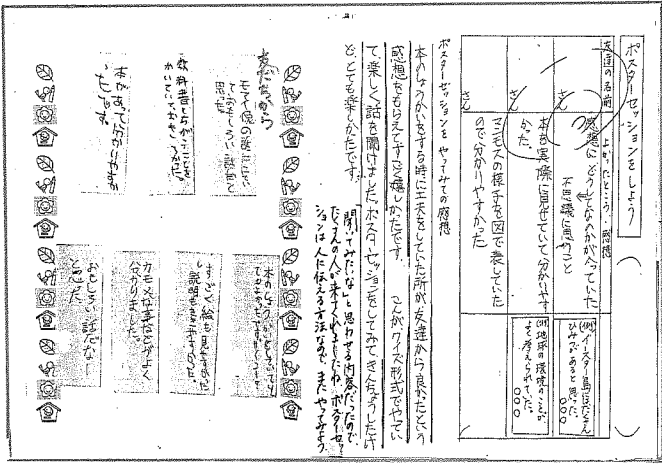 ポスターセッションをしよう
友達の名前
よかったところ・感想
さん
感想にどうしてなのかが入っていた
不思議に思うこと
さん
本を実際に見せていて分かりやす
かった。
さん
マンモスの様子を図で表していた
ので分かりやすかった
(例)イースター島にはたくさん
ひみつがあると思った。
○○○
(例)地球の環境のことが
よく考えられていた。
○○○
ポスターセッションをやってみての感想
本のしょうかいをする時に工夫をしていた所が友達から良かったという
感想をもらえてすごく嬉しかったです。
クイズ形式でやってい
て、楽しく話を聞けました。ポスターセッションをしてみて、きんちょうしたけ
ど、とても楽しかったです。
「聞いてみたいな」と思わせる内容だったので
たくさんの人が来てくれましたね。ポスターセッ
ションは人に伝える方法なので、またやってみよう
友だちから
ておもしろい話だと
思った。
教科書とちがうことを
本があって分かりやすか
ったです。
すごく絵も見やすかったし
説明も
分かりました。
おもしろい話だなー
と思った。